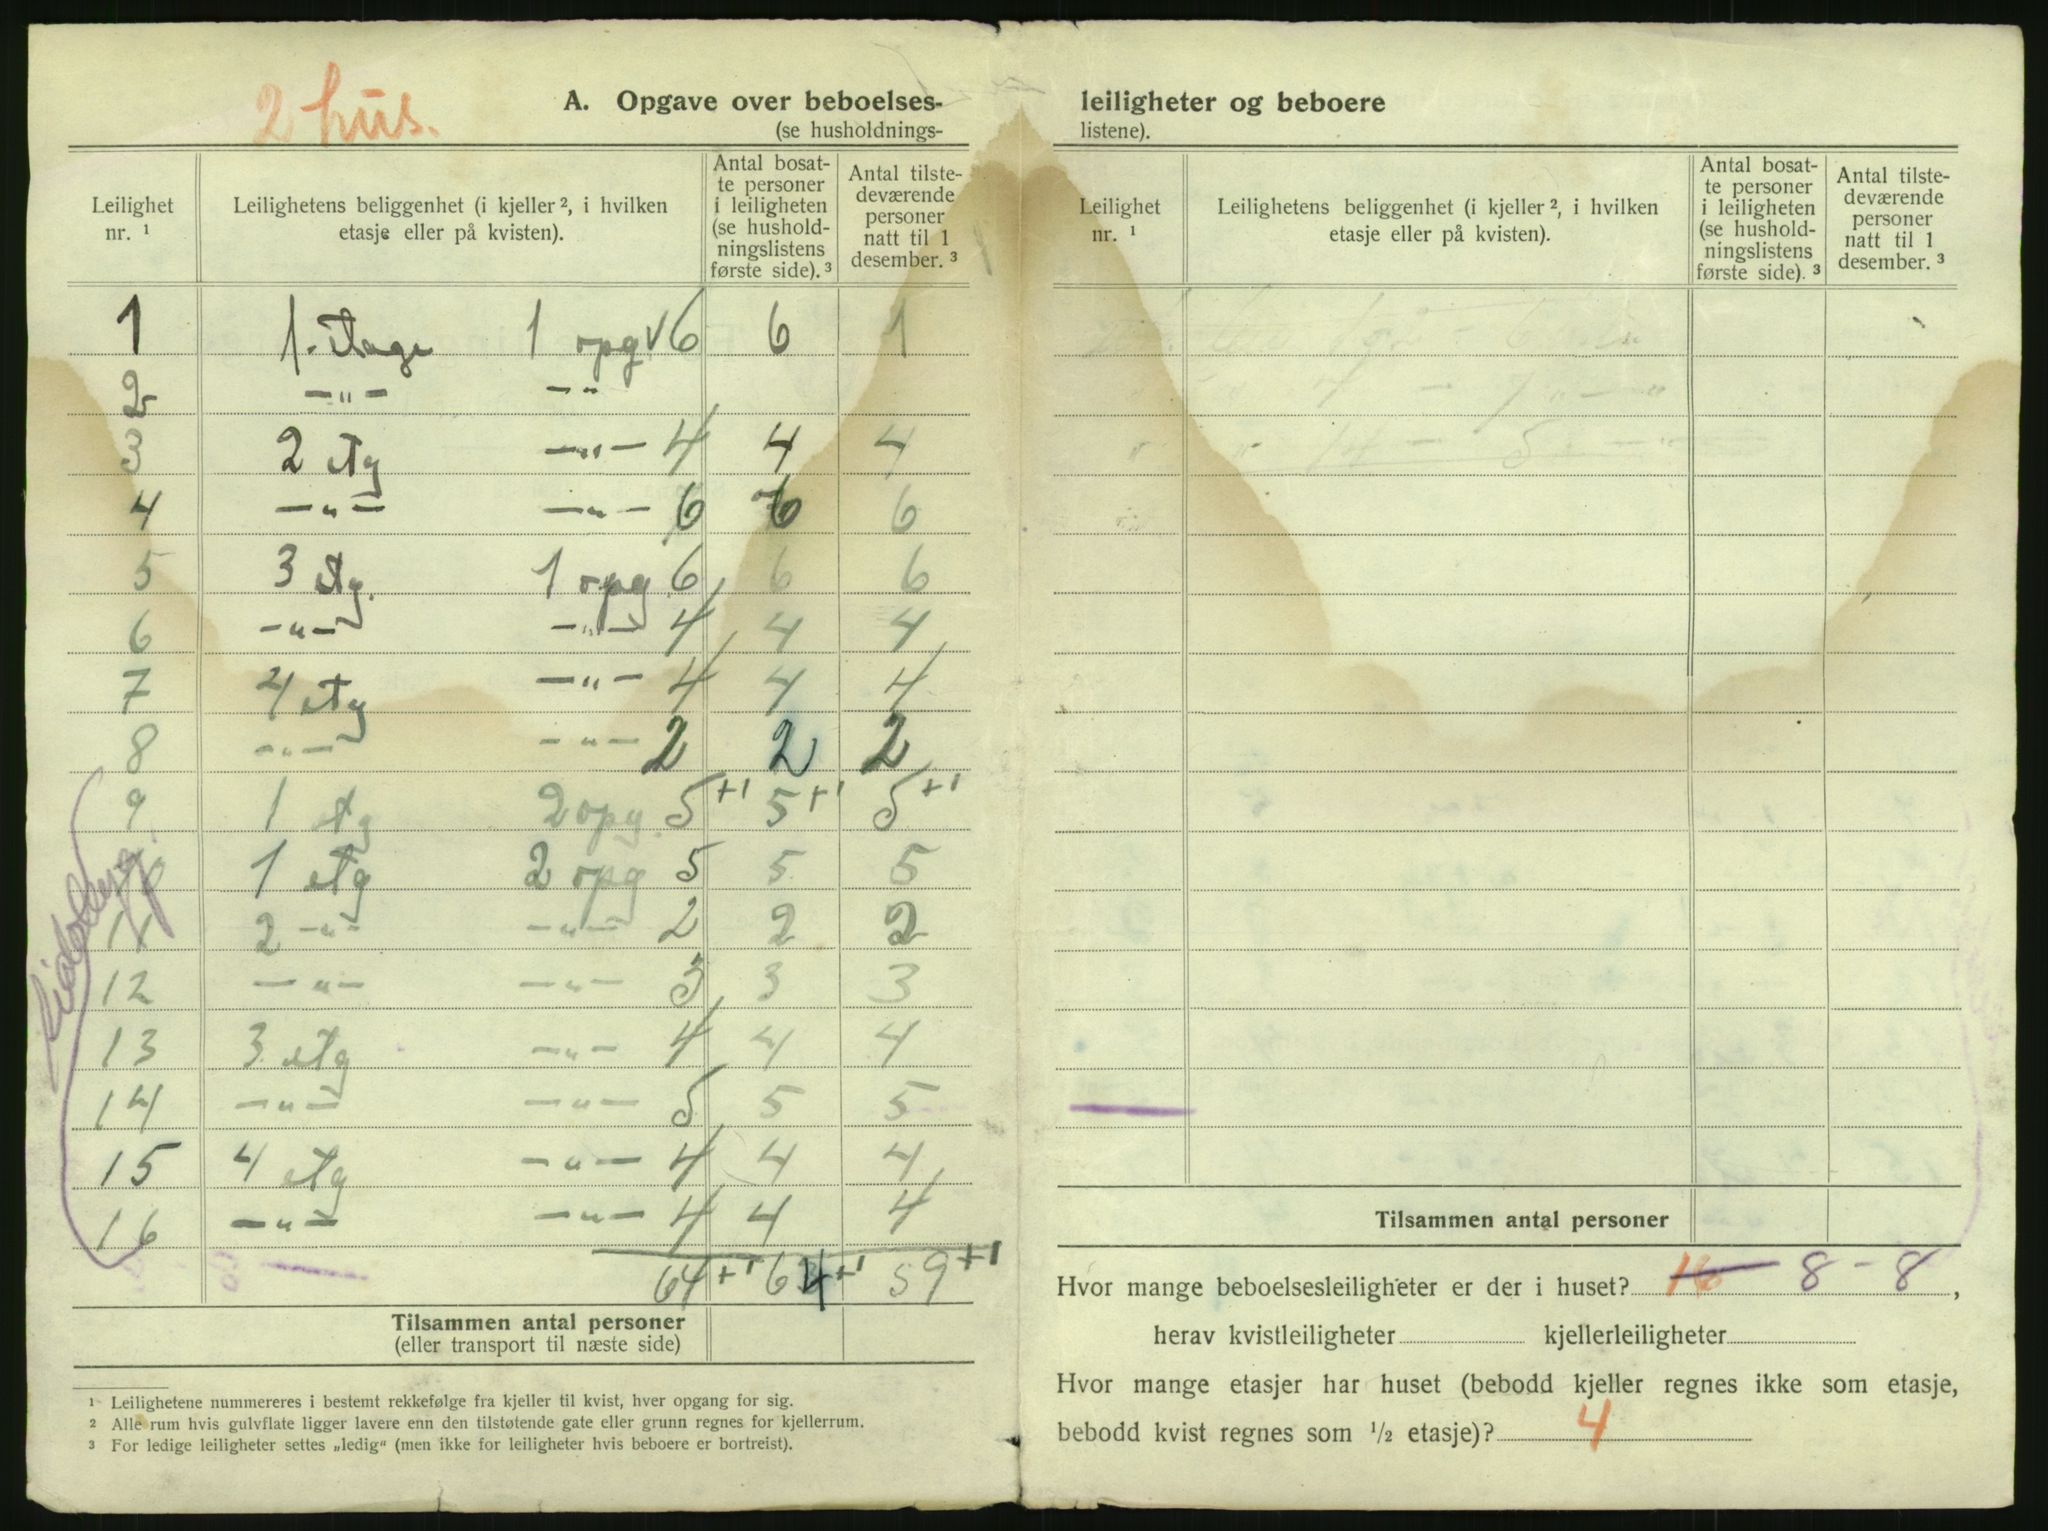 2 hus.
A. Opgave over beboelses-
(se husholdnings-
leiligheter og beboere
listene).
Leilighet nr. ¹
Leilighetens beliggenhet (i kjeller ², i hvilken etasje eller på kvisten).
Antal bosatte personer i leiligheten (se husholdningslistens første side). ³
Antal tilstedeværende personer natt til 1 desember. ³
Leilighet nr. ¹
Leilighetens beliggenhet (i kjeller ², i hvilken etasje eller på kvisten).
Antal bosatte personer i leiligheten (se husholdningslistens første side). ³
Antal tilstedeværende personer natt til 1 desember. ³
1 1. etage 1 opg √6 6 1
2 —„— —„
3 2 etg —„— 4 4 4
4 —„— —„— 6 6 6
5 3 etg. 1 opg 6 6 6
6 —„— —„— 4 4 4
7 4 etg —„— 4 4 4
8 —„— —„— 2 2 2
9 1 etg 2 opg. 5+1 5+1 5+1
10 1 etg 2 opg 5 5 5
11 2 —„— —„— 2 2 2
12 —„— —„— 3 3 3
13 3 etg —„— 4 4 4
14 —„— —„— 5 5 5
15 4 etg —„— 4 4 4
16 —„— —„— 4 4 4
64+1 64+1 59+1
Tilsammen antal personer
(eller transport til næste side)
¹ Leilighetene nummereres i bestemt rekkefølge fra kjeller til kvist, hver opgang for sig.
² Alle rum hvis gulvflate ligger lavere enn den tilstøtende gate eller grunn regnes for kjellerrum.
³ For ledige leiligheter settes „ledig“ (men ikke for leiligheter hvis beboere er bortreist).
Tilsammen antal personer
Hvor mange beboelsesleiligheter er der i huset? 16 8 - 8,
herav kvistleiligheter kjellerleiligheter
Hvor mange etasjer har huset (bebodd kjeller regnes ikke som etasje,
bebodd kvist regnes som ½ etasje)? 4